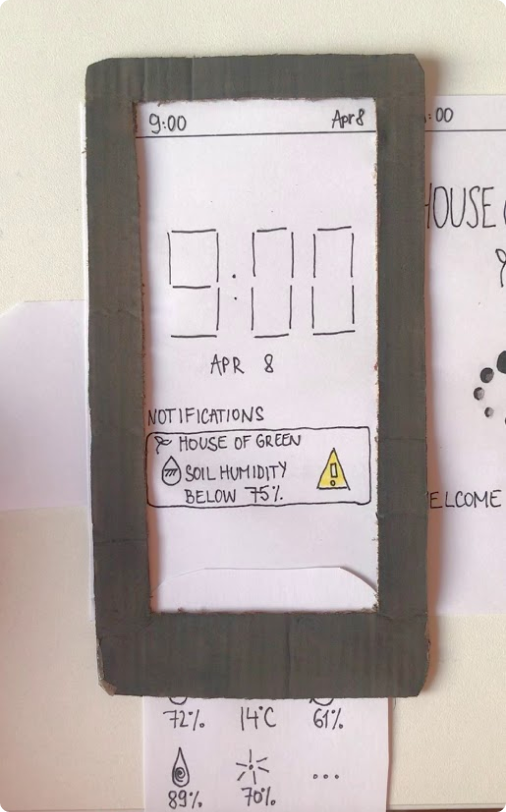 9:00 Apr 8
9:00
APR 8
NOTIFICATIONS
HOUSE OF GREEN
SOIL HUMIDITY
BELOW 75%
:00
HOUSE
ELCOME
72% 14°C 61%
89% 70% ...